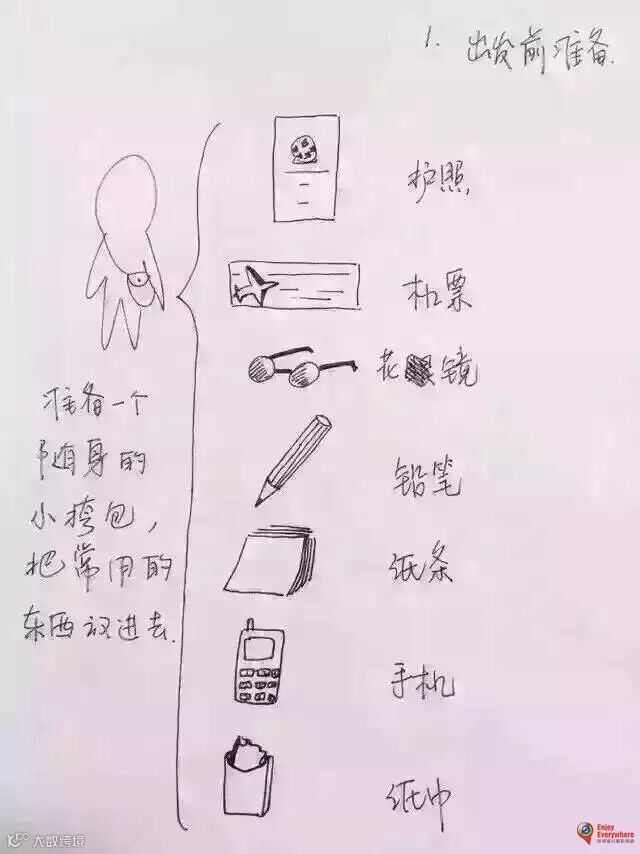 1. 出发前准备
护照
机票
花镜
铅笔
纸条
手机
纸巾
准备一个
随身的
小挎包，
把常用的
东西放进去.
大数跨境
Enjoy
Everywhere